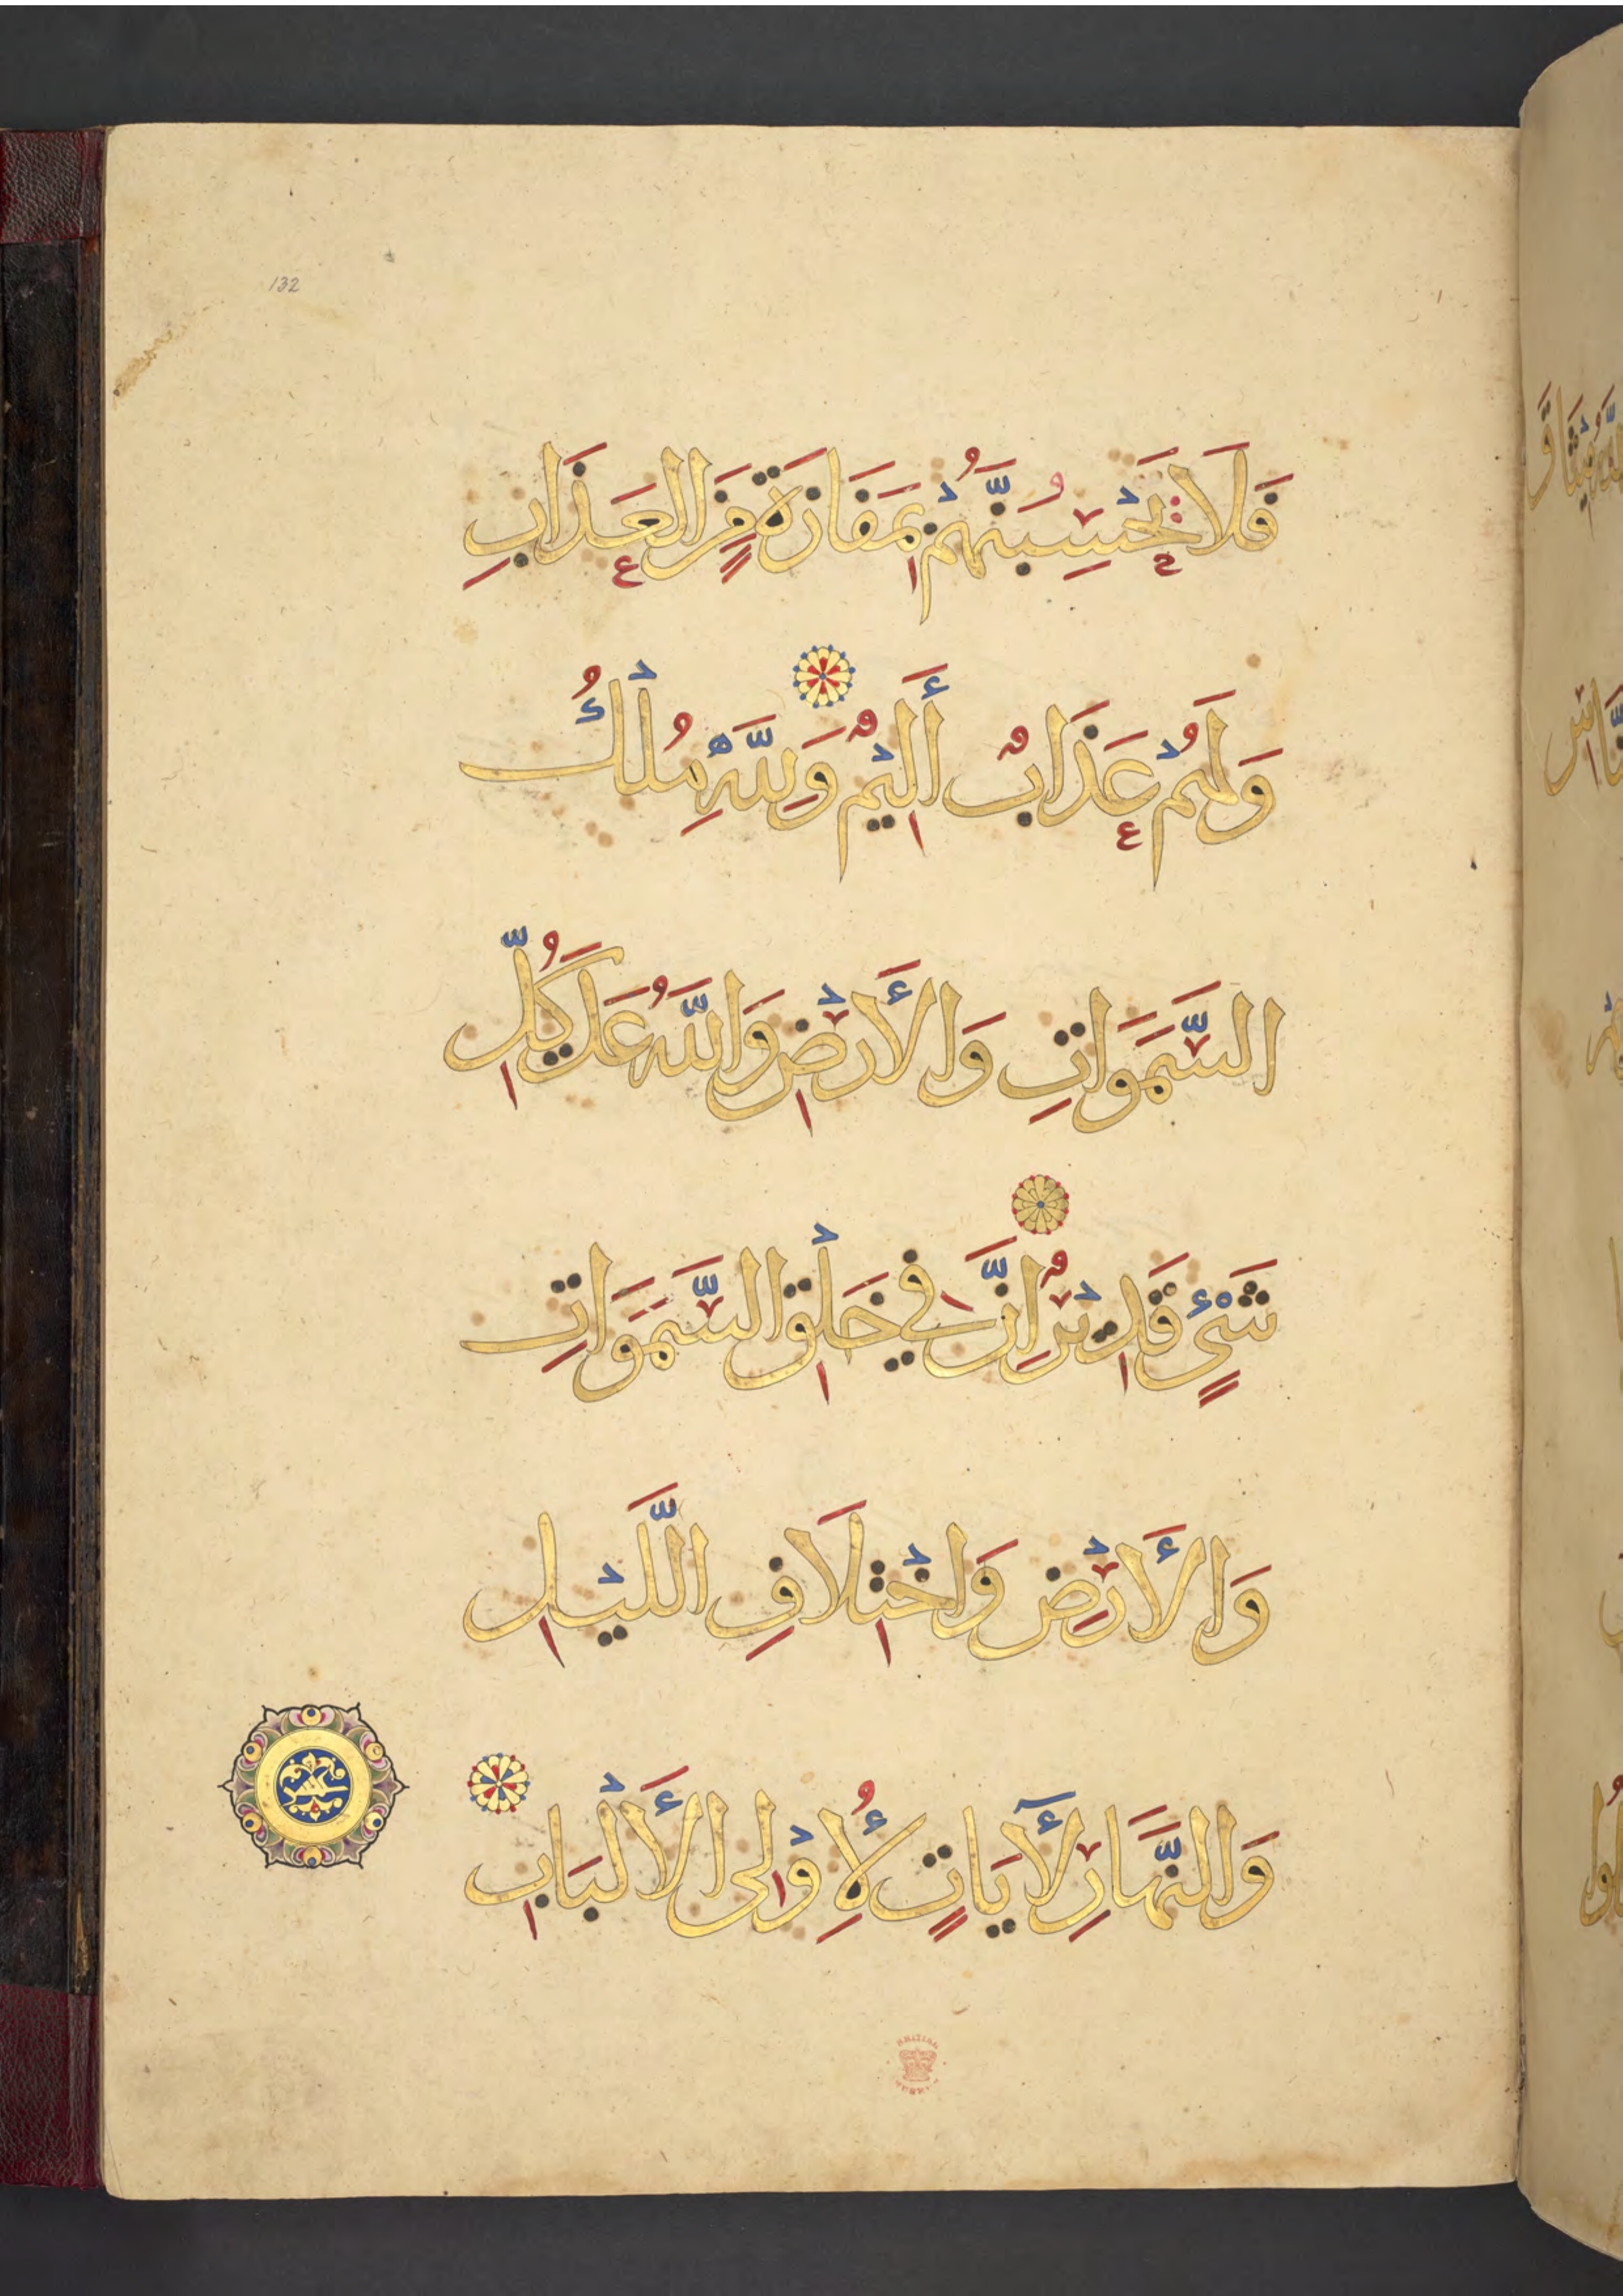 132
فَلَا يَحْسِبُنَّهُمْ بِمَفَازَةٍ مِنَ الْعَذَابِ
وَلَهُمْ عَذَابٌ أَلِيْمٌ وَلِلَّهِ مُلْكُ
السَّمَوَاتِ وَالأَرْضِ وَاللَّهُ عَلَى كُلِّ
شَيْءٍ قَدِيْرٌ إِنَّ فِي خَلْقِ السَّمَوَاتِ
وَالأَرْضِ وَاخْتِلَافِ اللَّيْلِ
وَالنَّهَارِ لَآيَاتٍ لِأُوْلِى الأَلْبَابِ
BRITISH MUSEUM